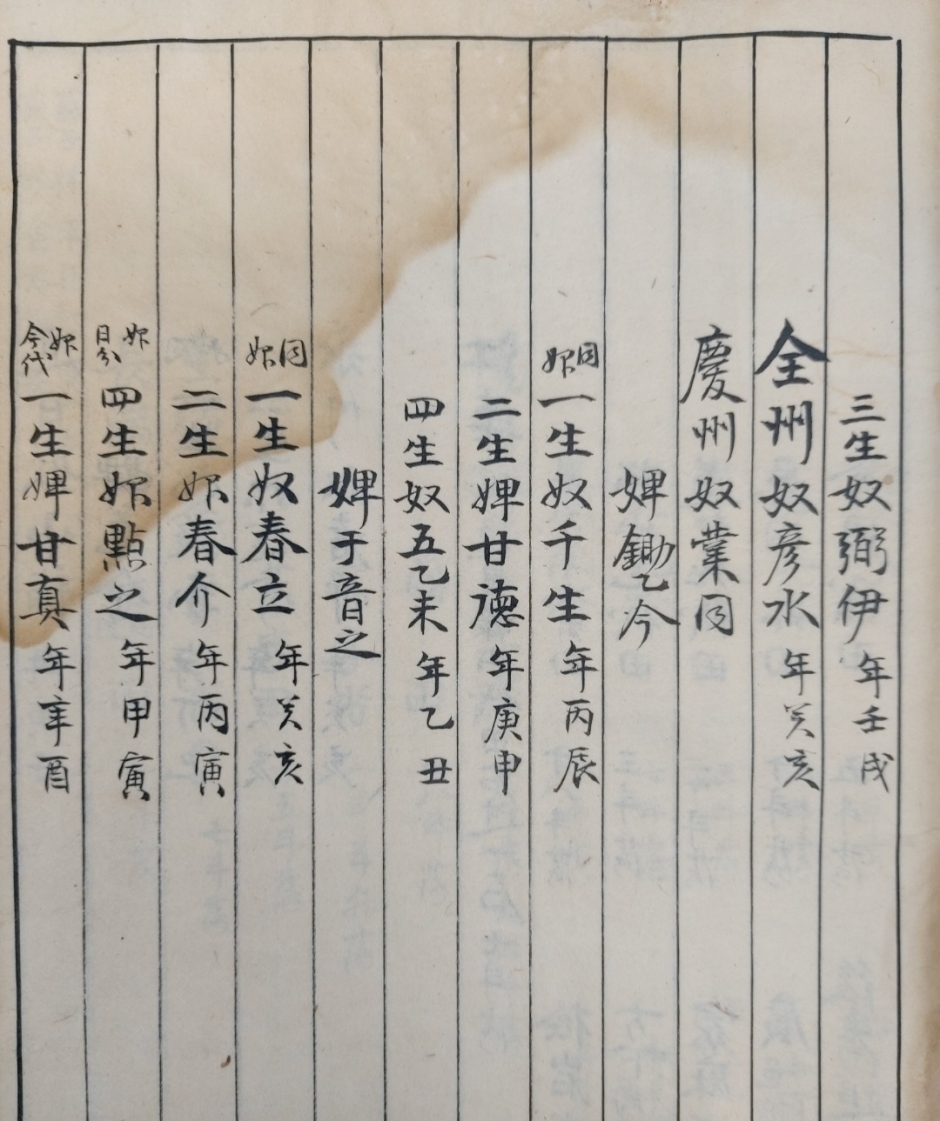 三生奴弼伊年壬戌
全州奴彦水年癸亥
慶州奴業同
婢鋤乙今
同婢一生奴千生年丙辰
二生婢甘德年庚申
四生奴五乙未年乙丑
婢于音之
同婢一生奴春立年癸亥
二生婢春介年丙寅
婢日分四生婢點之年甲寅
婢今代一生婢甘真年辛酉